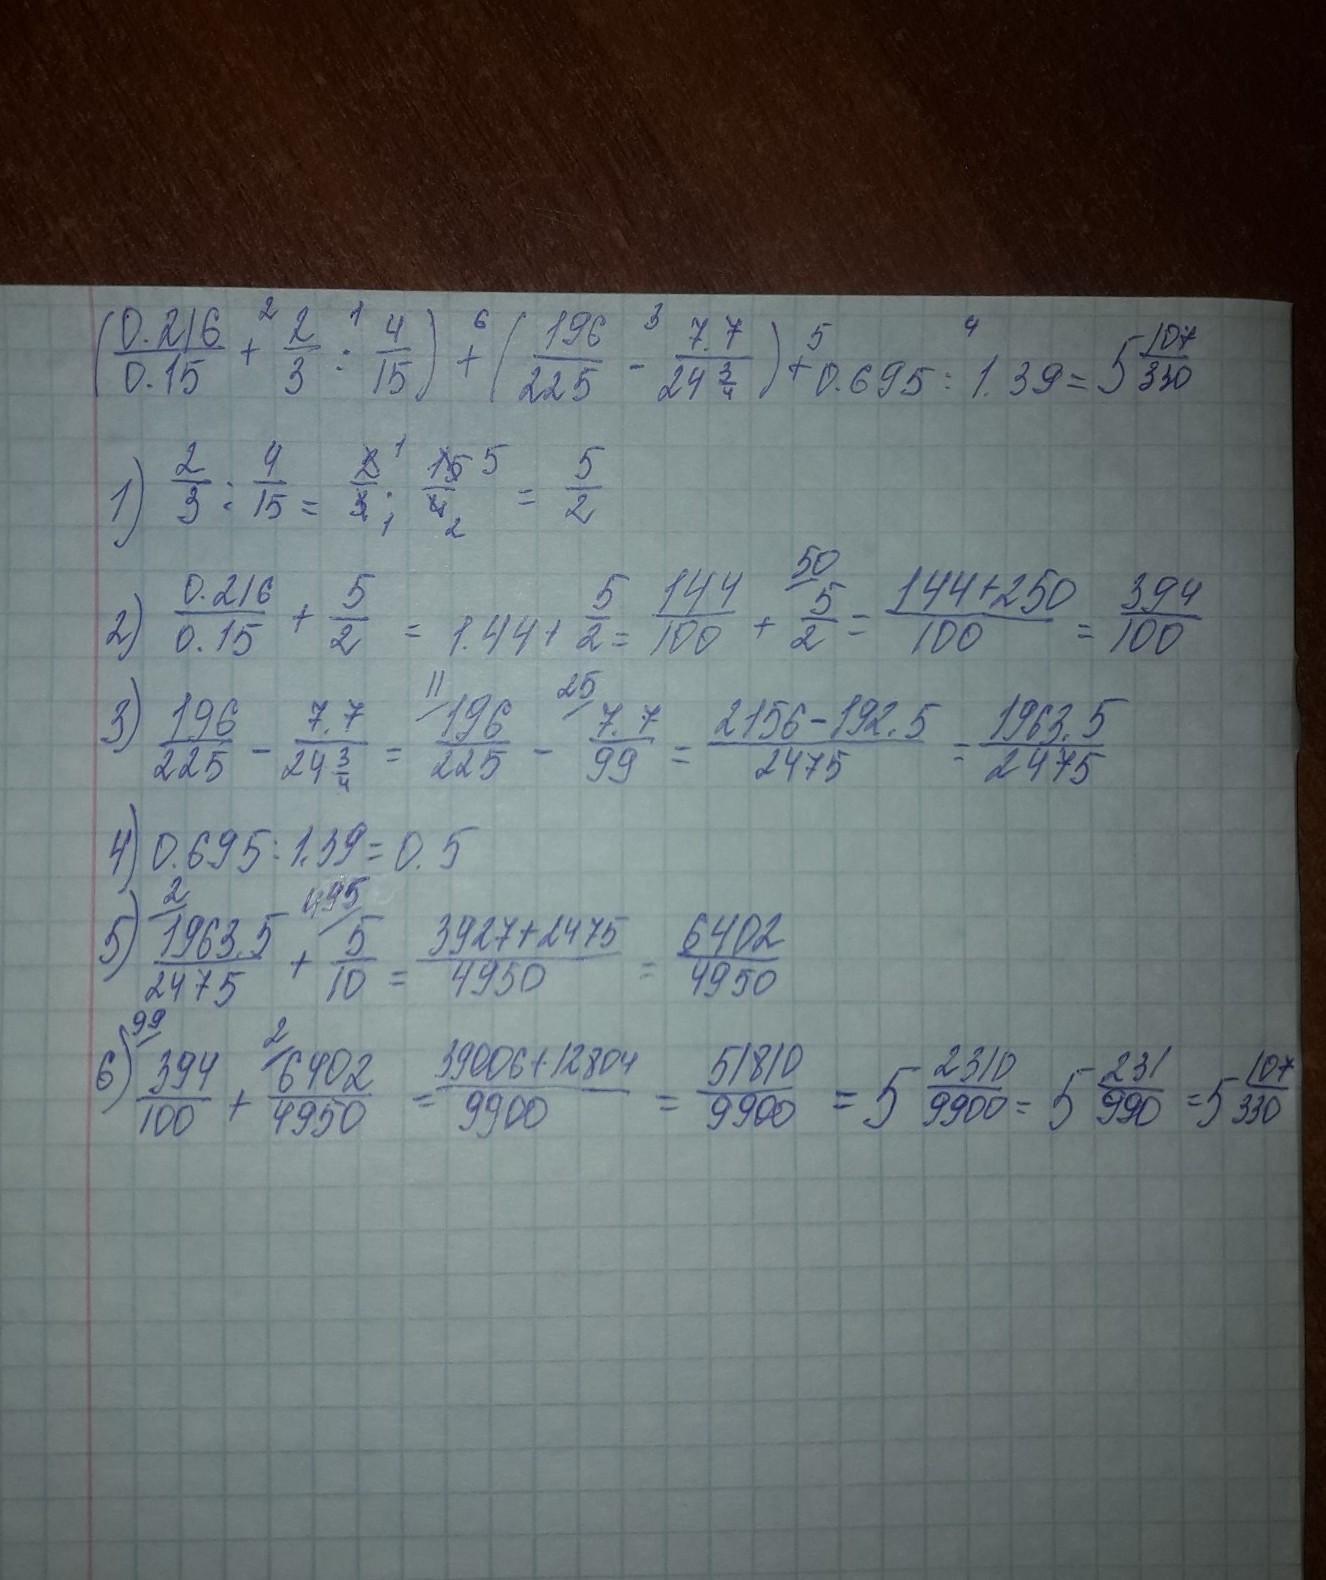 (0.216/0.15 +² 2/3 :¹ 4/15) +⁶ (196/225 -³ 7.7/24 3/4) +⁵ 0.695 :⁴ 1.39 = 5 107/330
1) 2/3 : 4/15 = 2/3 ¹ ₁ ; 15/4 ⁵ ₂ = 5/2
2) 0.216/0.15 + 5/2 = 1.44 + 5/2 = 144/100 + ⁵⁰/ 5/2 = 144+250/100 = 394/100
3) 196/225 - 7.7/24 3/4 = ¹¹/ 196/225 - ²⁵/ 7.7/99 = 2156-192.5/2475 = 1963.5/2475
4) 0.695 : 1.39 = 0.5
5) ²/ 1963.5/2475 + ⁴⁹⁵/ 5/10 = 3927+2475/4950 = 6402/4950
6) ⁹⁹/ 394/100 + ²/ 6402/4950 = 39006+12804/9900 = 51810/9900 = 5 2310/9900 = 5 231/990 = 5 107/330